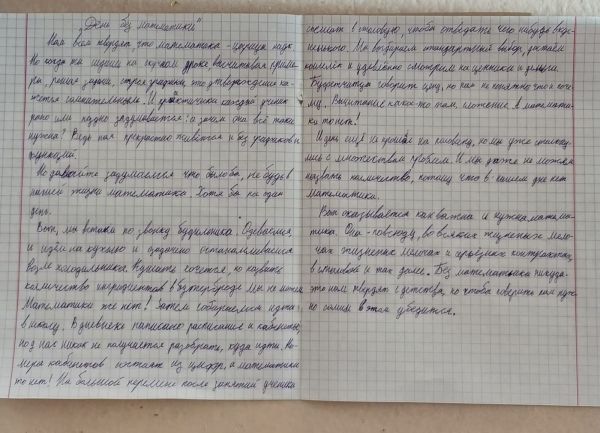 "День без математики"
Нам всем твердят, что математика - царица наук.
Но когда ты сидишь на скучном уроке высчитывая приме-
ры, решая задачи, строя графики, это утверждение ка-
жется сомнительным. И практически каждый ученик
рано или поздно задумывается: а зачем она всё таки
нужна? Ведь нам прекрасно живётся и без графиков и
функций.
Но давайте задумаемся что было бы, не будь в
нашей жизни математики. Хотя бы на один
день.
Вот, мы встали по звонку будильника. Одеваемся,
и идём на кухню и озадачено останавливаемся
возле холодильника. Кушать хочется, но назвать
количество ингредиентов в бутерброде мы не можем
Математики же нет! Затем собираемся идти
в школу. В дневнике написано расписание и кабинеты,
но у нас никак не получается разобрать, куда идти. Но-
мера кабинетов состоят из цифр, а математики
то нет! На большой перемене после занятий ученики
спешат в столовую, чтобы отведать чего нибудь вкус-
ненького. Мы выбираем стандартный набор, достаём
кошелёк и удивлённо смотрим на ценники и деньги.
Буфетчица говорит цену, но нам не понятно что к че-
му. Вычитание какое-то там, сложение. А математи-
ки то нет!
И день ещё не прошёл на половину, но мы уже столкну-
лись с множеством проблем. И мы даже не можем
назвать количество, потому что в нашем дне нет
математики.
Вот оказывается как важна и нужна матема-
тика. Она - повсюду, во всяких жизненных мело-
чах жизненных мелочах и серьёзных контрактах,
в столовой и так далее. Без математики никуда-
это нам твердят с детства, но чтобы поверить нам нуж-
но самим в этом убедиться.